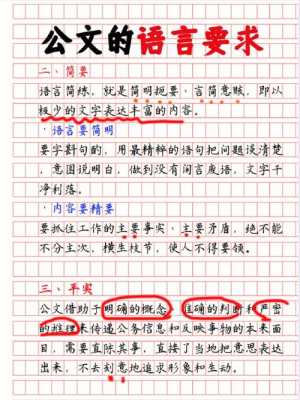 公文的语言要求
二、简要
语言简练，就是简明扼要、言简意赅，即以
极少的文字表达丰富的内容。
·语言要简明
要字斟句酌，用最精粹的语句把问题谈清楚
，意图说明白，做到没有闲言废话，文字干
净利落。
·内容要精要
要抓住工作的主要事实、主要矛盾，绝不能
不分主次，横生枝节，使人不得要领。
三、平实
公文借助于明确的概念、准确的判断和严密
的推理来传递公务信息和反映事物的本来面
目，需要直陈其事，直接了当地把意思表达
出来，不去刻意地追求形象和生动。